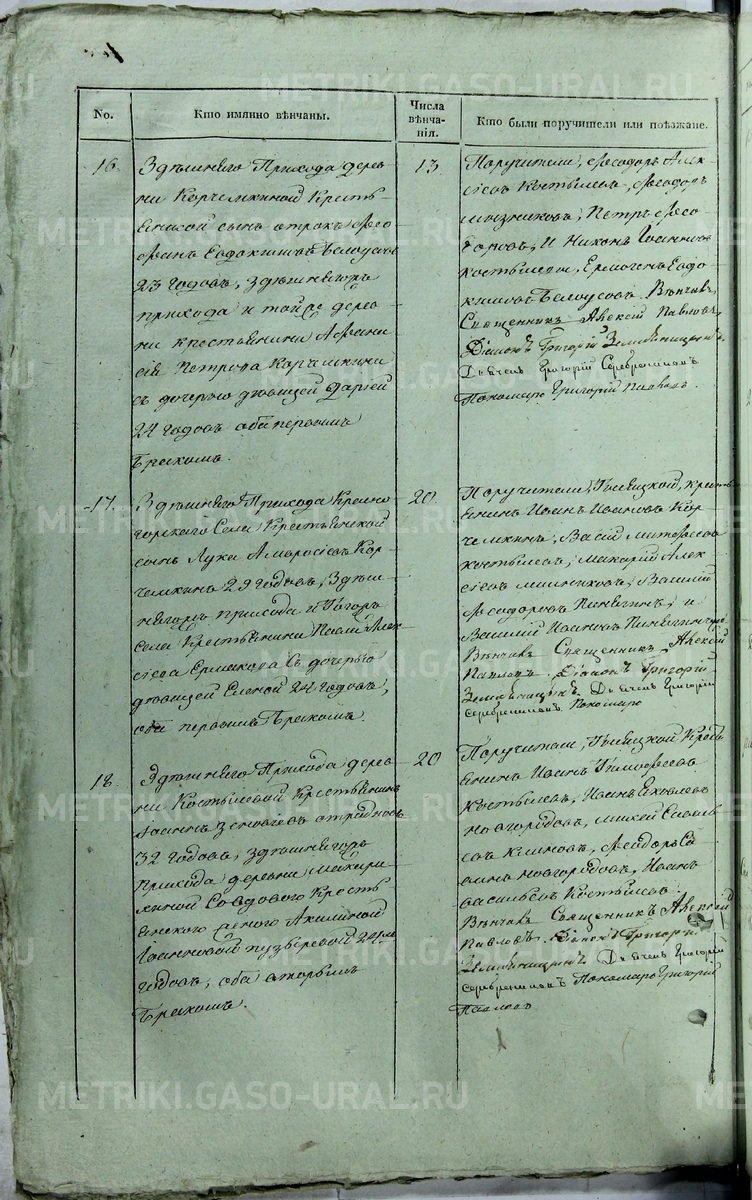 No.
Кто имянно вѣнчаны.
Числа
вѣнча-
нія.
Кто были поручители или поѣзжане.
16.
Здѣшняго Прихода дерев
ни Корчемкиной Кресть
янской сынъ отрокъ Ѳео
фанъ Евдокимовъ Белоусовъ
23 годовъ, здѣшнягожъ
прихода и тойже дерев
ни крестьянина Афана
сія Петрова Корчемкина
съ дочерью дѣвицей Дарьей
24 годовъ оба первымъ
бракомъ.
13
Поручители, Ѳеодоръ Алек
сіевъ Костылевъ, Ѳеодоръ
Петръ Ѳео-
доровъ, и Никонъ Іоанновъ
Костылевы, Ермогенъ Евдо
кимовъ Белоусовъ Вѣнчавъ
Священникъ Алексій Павловъ
Діаконъ Григорій Земляницынъ
Дьячекъ Григорій Серебрениковъ
Пономарь Григорій Павловъ
17.
Здѣшняго Прихода Красно
горскаго Села Крестьянской
сынъ Лука Амвросіевъ Кор
чемкинъ 29 годовъ, Здѣш
нягожъ прихода и тогожъ
села Крестьянина Павла Алек
сіева Ермакова съ дочерью
дѣвицей Еленой 24 годовъ,
оба первымъ бракомъ.
20
Поручители, Тысяцкой, кресть
янинъ Иоанъ Иоановъ Кор
чемкинъ, Василій
Костылевъ, Макарій Алек
сіевъ Василій
Ѳеодоровъ Пинягинъ, и
Василій Иоановъ Пинягинъ
Вѣнчавъ Священникъ Алексій
Павловъ Діаконъ Григорій
Земляницынъ Дьячекъ Григорій
Серебрениковъ Пономарь
18.
Здѣшняго Прихода дерев
ни Костылевой Крестьянинъ
Иоаннъ Зеновіевъ
32 годовъ, здѣшнягожъ
прихода деревни Макари
хиной Крестья
янского Акилиной
Іоанновой Пузыревой 24
годовъ, оба вторымъ
бракомъ.
20
Поручители, Тысяцкой Кресть
янинъ Иоанъ Тимофеевъ
Костылевъ, Иоанъ Яковлевъ
Новгородовъ,
Климовъ, Ѳеодоръ
Новгородовъ, Иоанъ
Васильевъ Костылевъ.
Вѣнчавъ Священникъ Алексій
Павловъ. Діаконъ Григорій
Земляницынъ Дьячекъ Григорій
Серебрениковъ Пономарь Григорій
Павловъ
METRIKI.GASO-URAL.RU